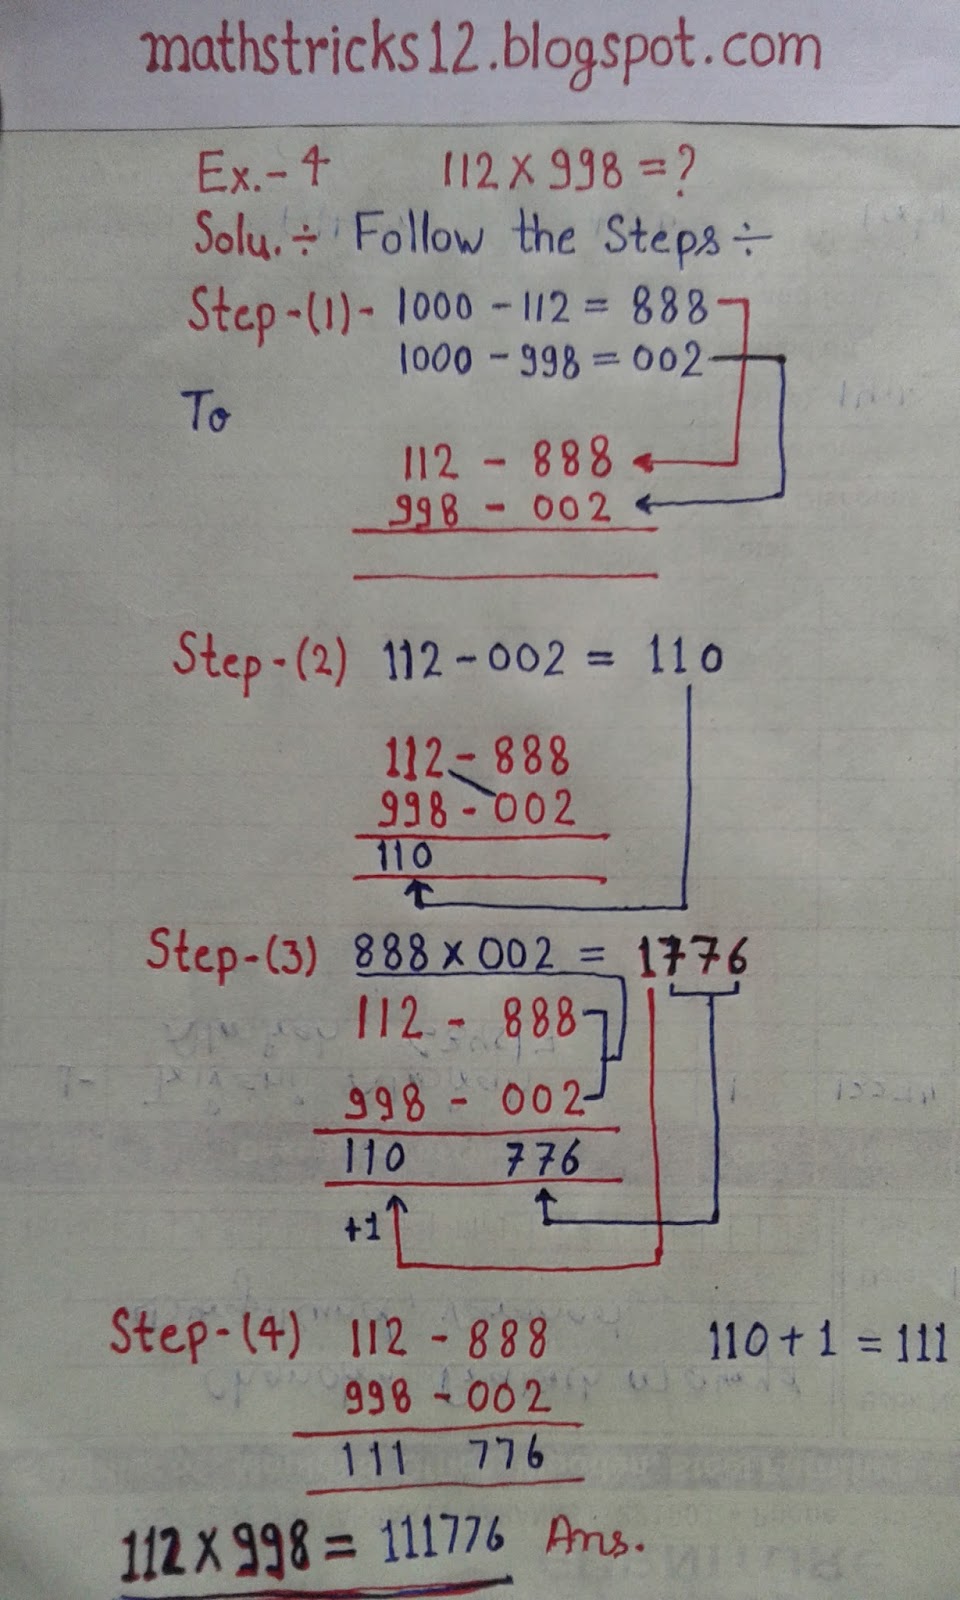 mathstricks12.blogspot.com
Ex.- 4 112 × 998 = ?
Solu. ÷ Follow the Steps ÷
Step-(1)- 1000 - 112 = 888
1000 - 998 = 002
To
112 - 888
998 - 002
Step-(2) 112 - 002 = 110
112 - 888
998 - 002
110
Step-(3) 888 × 002 = 1776
112 - 888
998 - 002
110 776
+1
Step-(4) 112 - 888 110 + 1 = 111
998 - 002
111 776
112 × 998 = 111776 Ans.